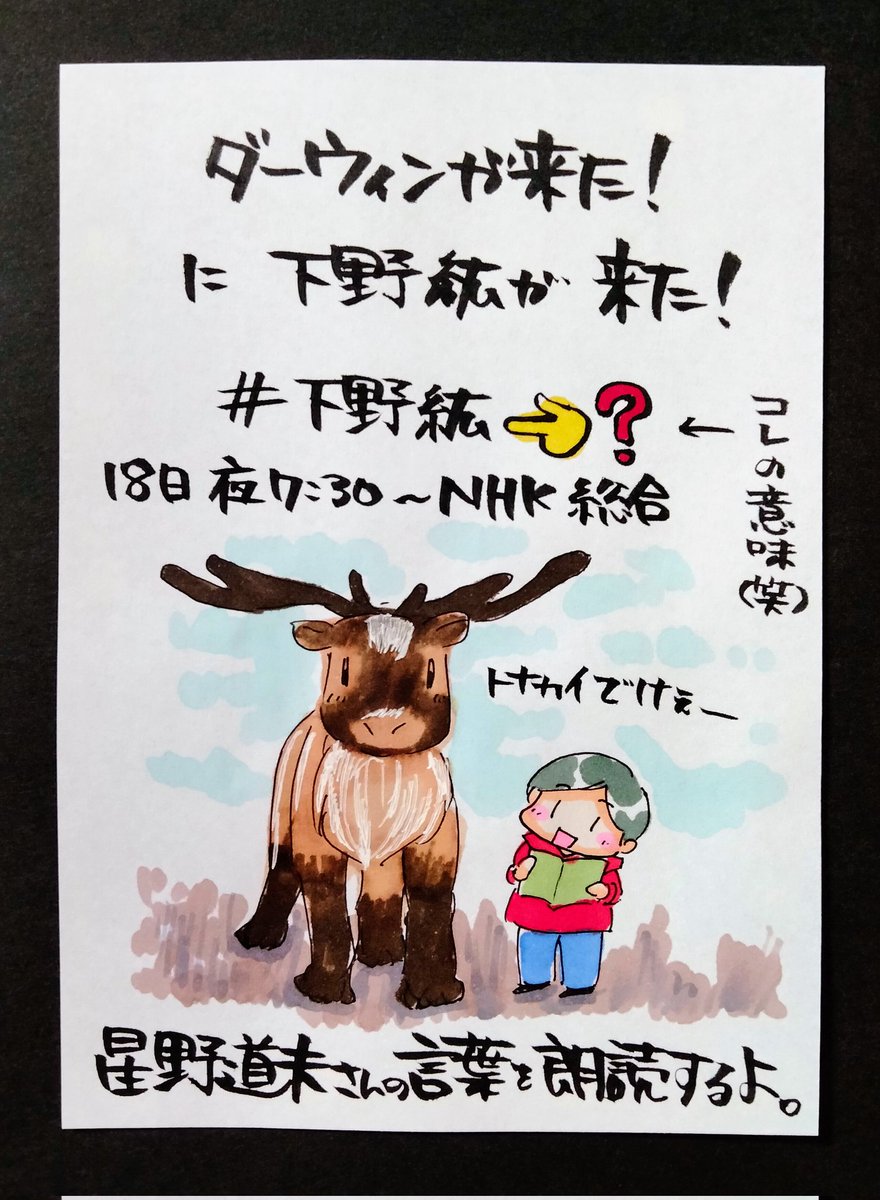 ダーウィンが来た!
に 下野紘が 来た!
#下野紘 ? ←
コレの意味(笑)
18日 夜7:30〜NHK 総合
トナカイでけぇー
星野道夫さんの言葉を朗読するよ。